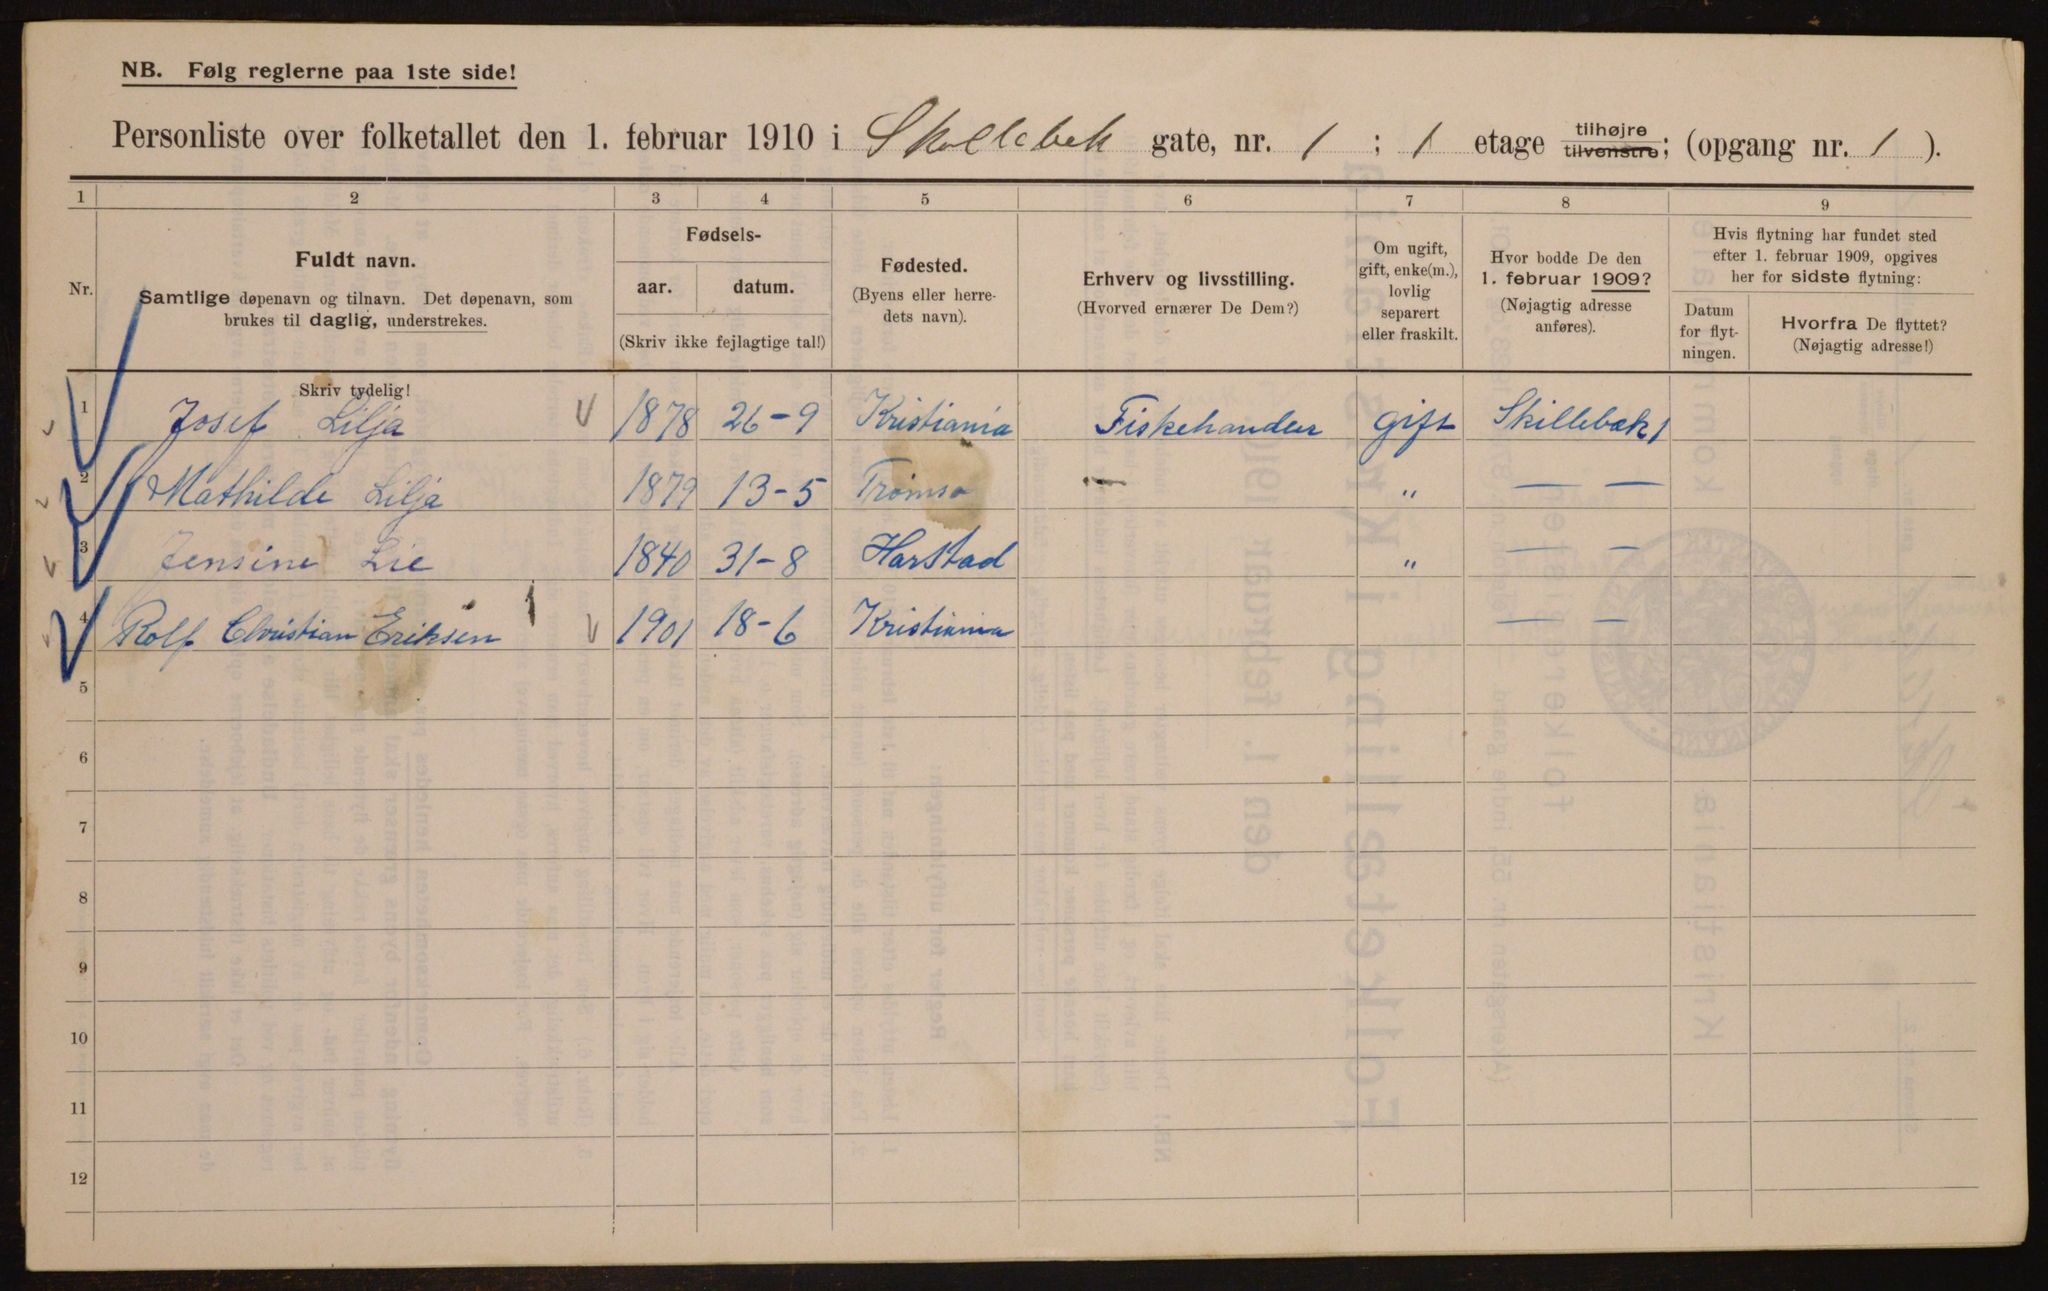 NB. Følg reglerne paa 1ste side!
Personliste over folketallet den 1. februar 1910 i Skillebek gate, nr. 1 ; 1 etage tilhøjre tilvenstre; (opgang nr. 1 ).
1 2 3 4 5 6 7 8 9
Nr. Fuldt navn. Samtlige døpenavn og tilnavn. Det døpenavn, som brukes til daglig, understrekes.
Fødsels- aar. datum. (Skriv ikke fejlagtige tal!)
Fødested. (Byens eller herredets navn).
Erhverv og livsstilling. (Hvorved ernærer De Dem?)
Om ugift, gift, enke(m.), lovlig separert eller fraskilt.
Hvor bodde De den 1. februar 1909? (Nøjagtig adresse anføres).
Hvis flytning har fundet sted efter 1. februar 1909, opgives her for sidste flytning:
Datum for flytningen.
Hvorfra De flyttet? (Nøjagtig adresse!)
Skriv tydelig!
1 Josef Lilja 1878 26-9 Kristiania Fiskehandler gift Skillebæk 1
2 Mathilde Lilja 1879 13-5 Tromsø — " — —
3 Jensine Lie 1840 31-8 Harstad " — —
4 Rolf Christian Eriksen 1 1901 18-6 Kristiania — —
5
6
7
8
9
10
11
12